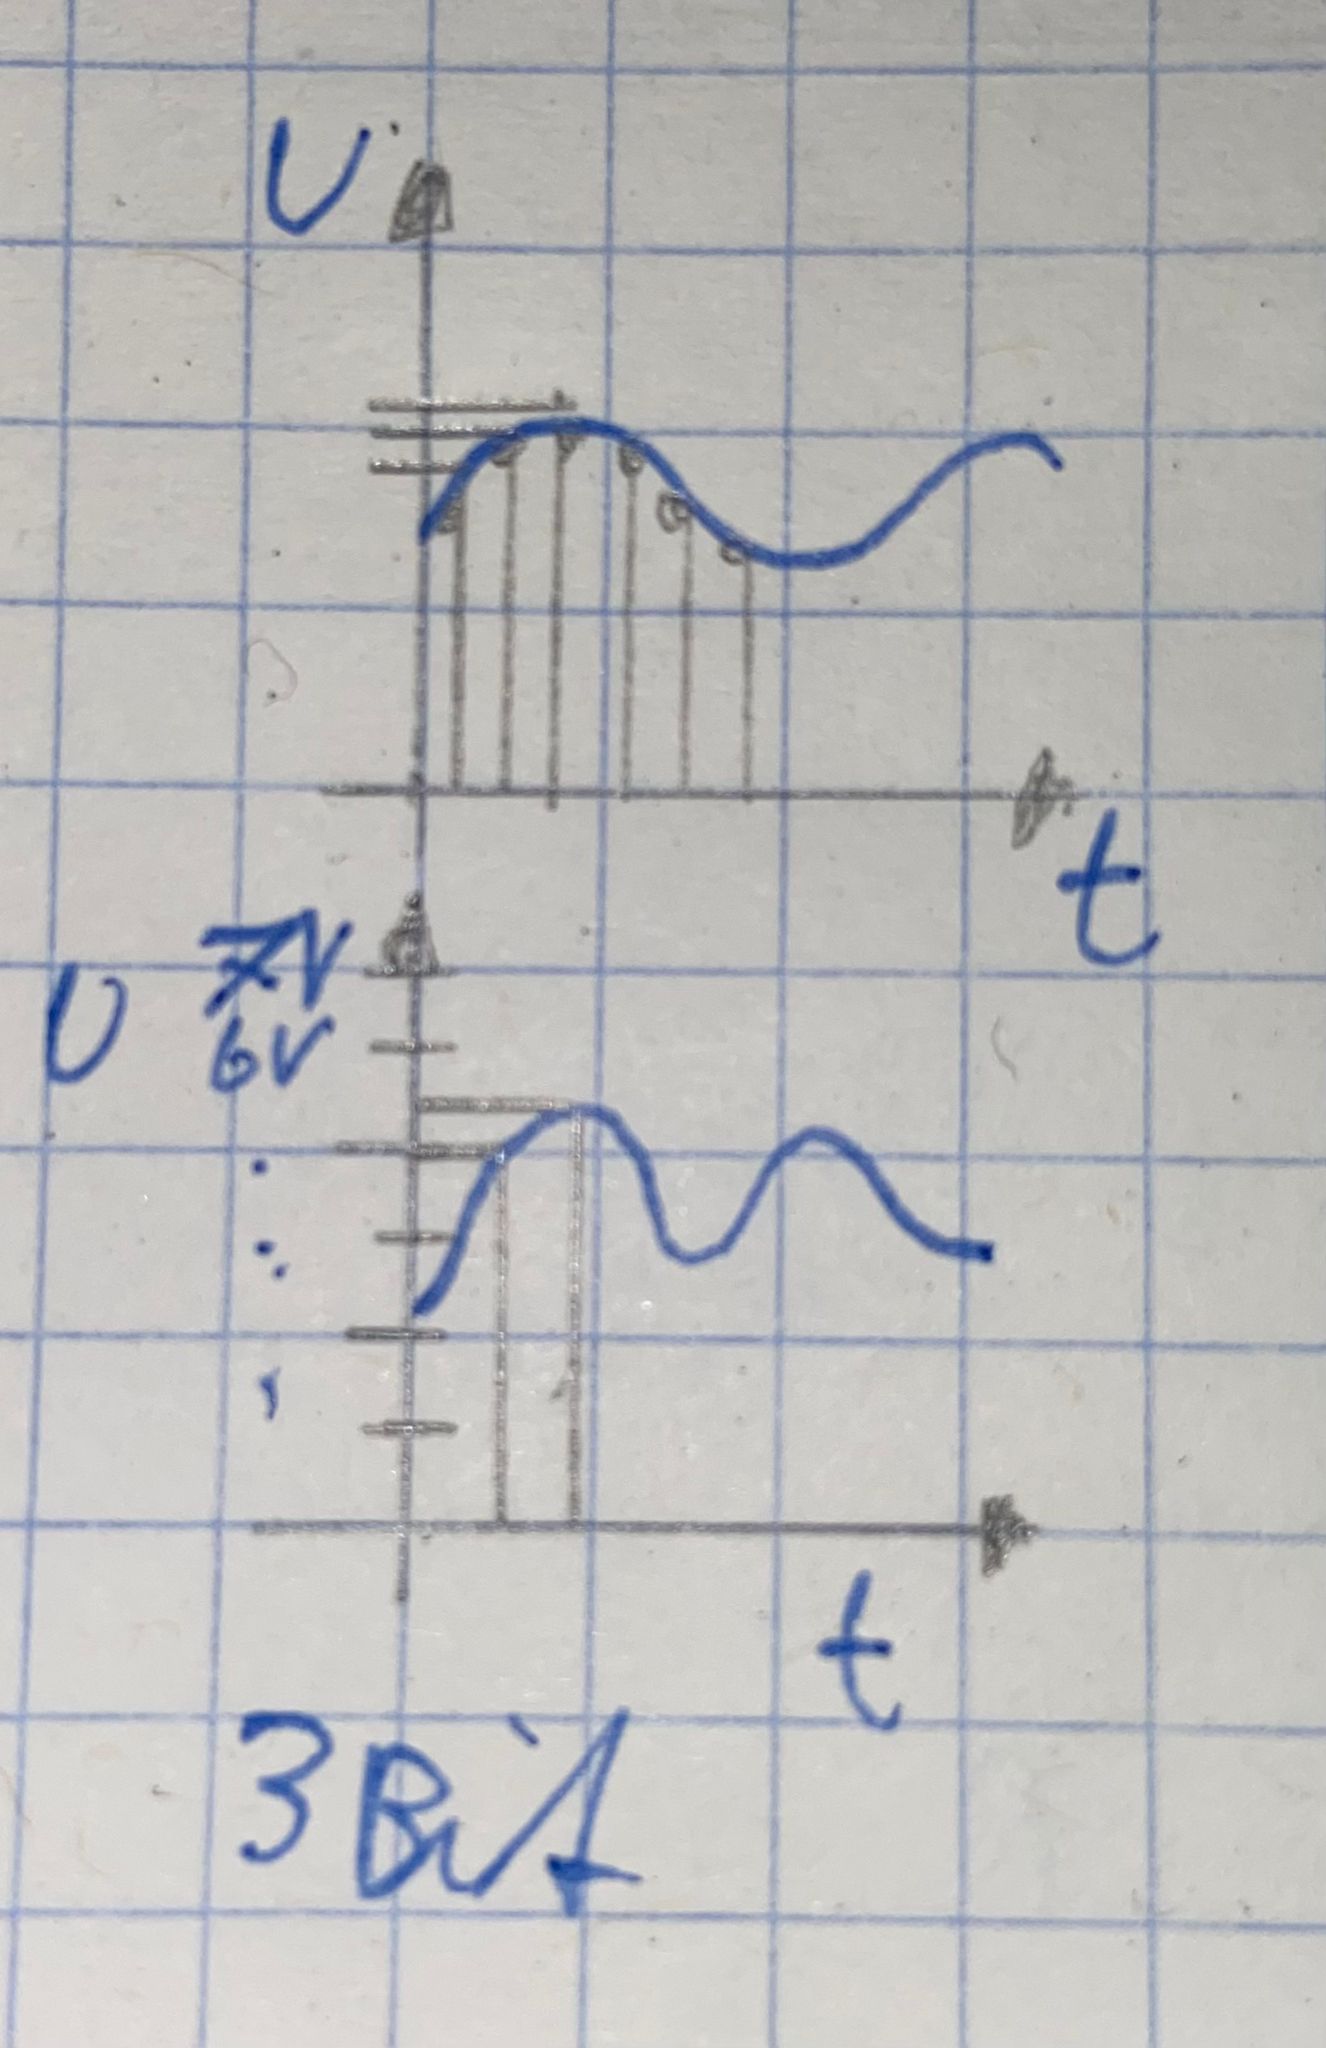 U
t
U 7V
6V
t
3 Bit